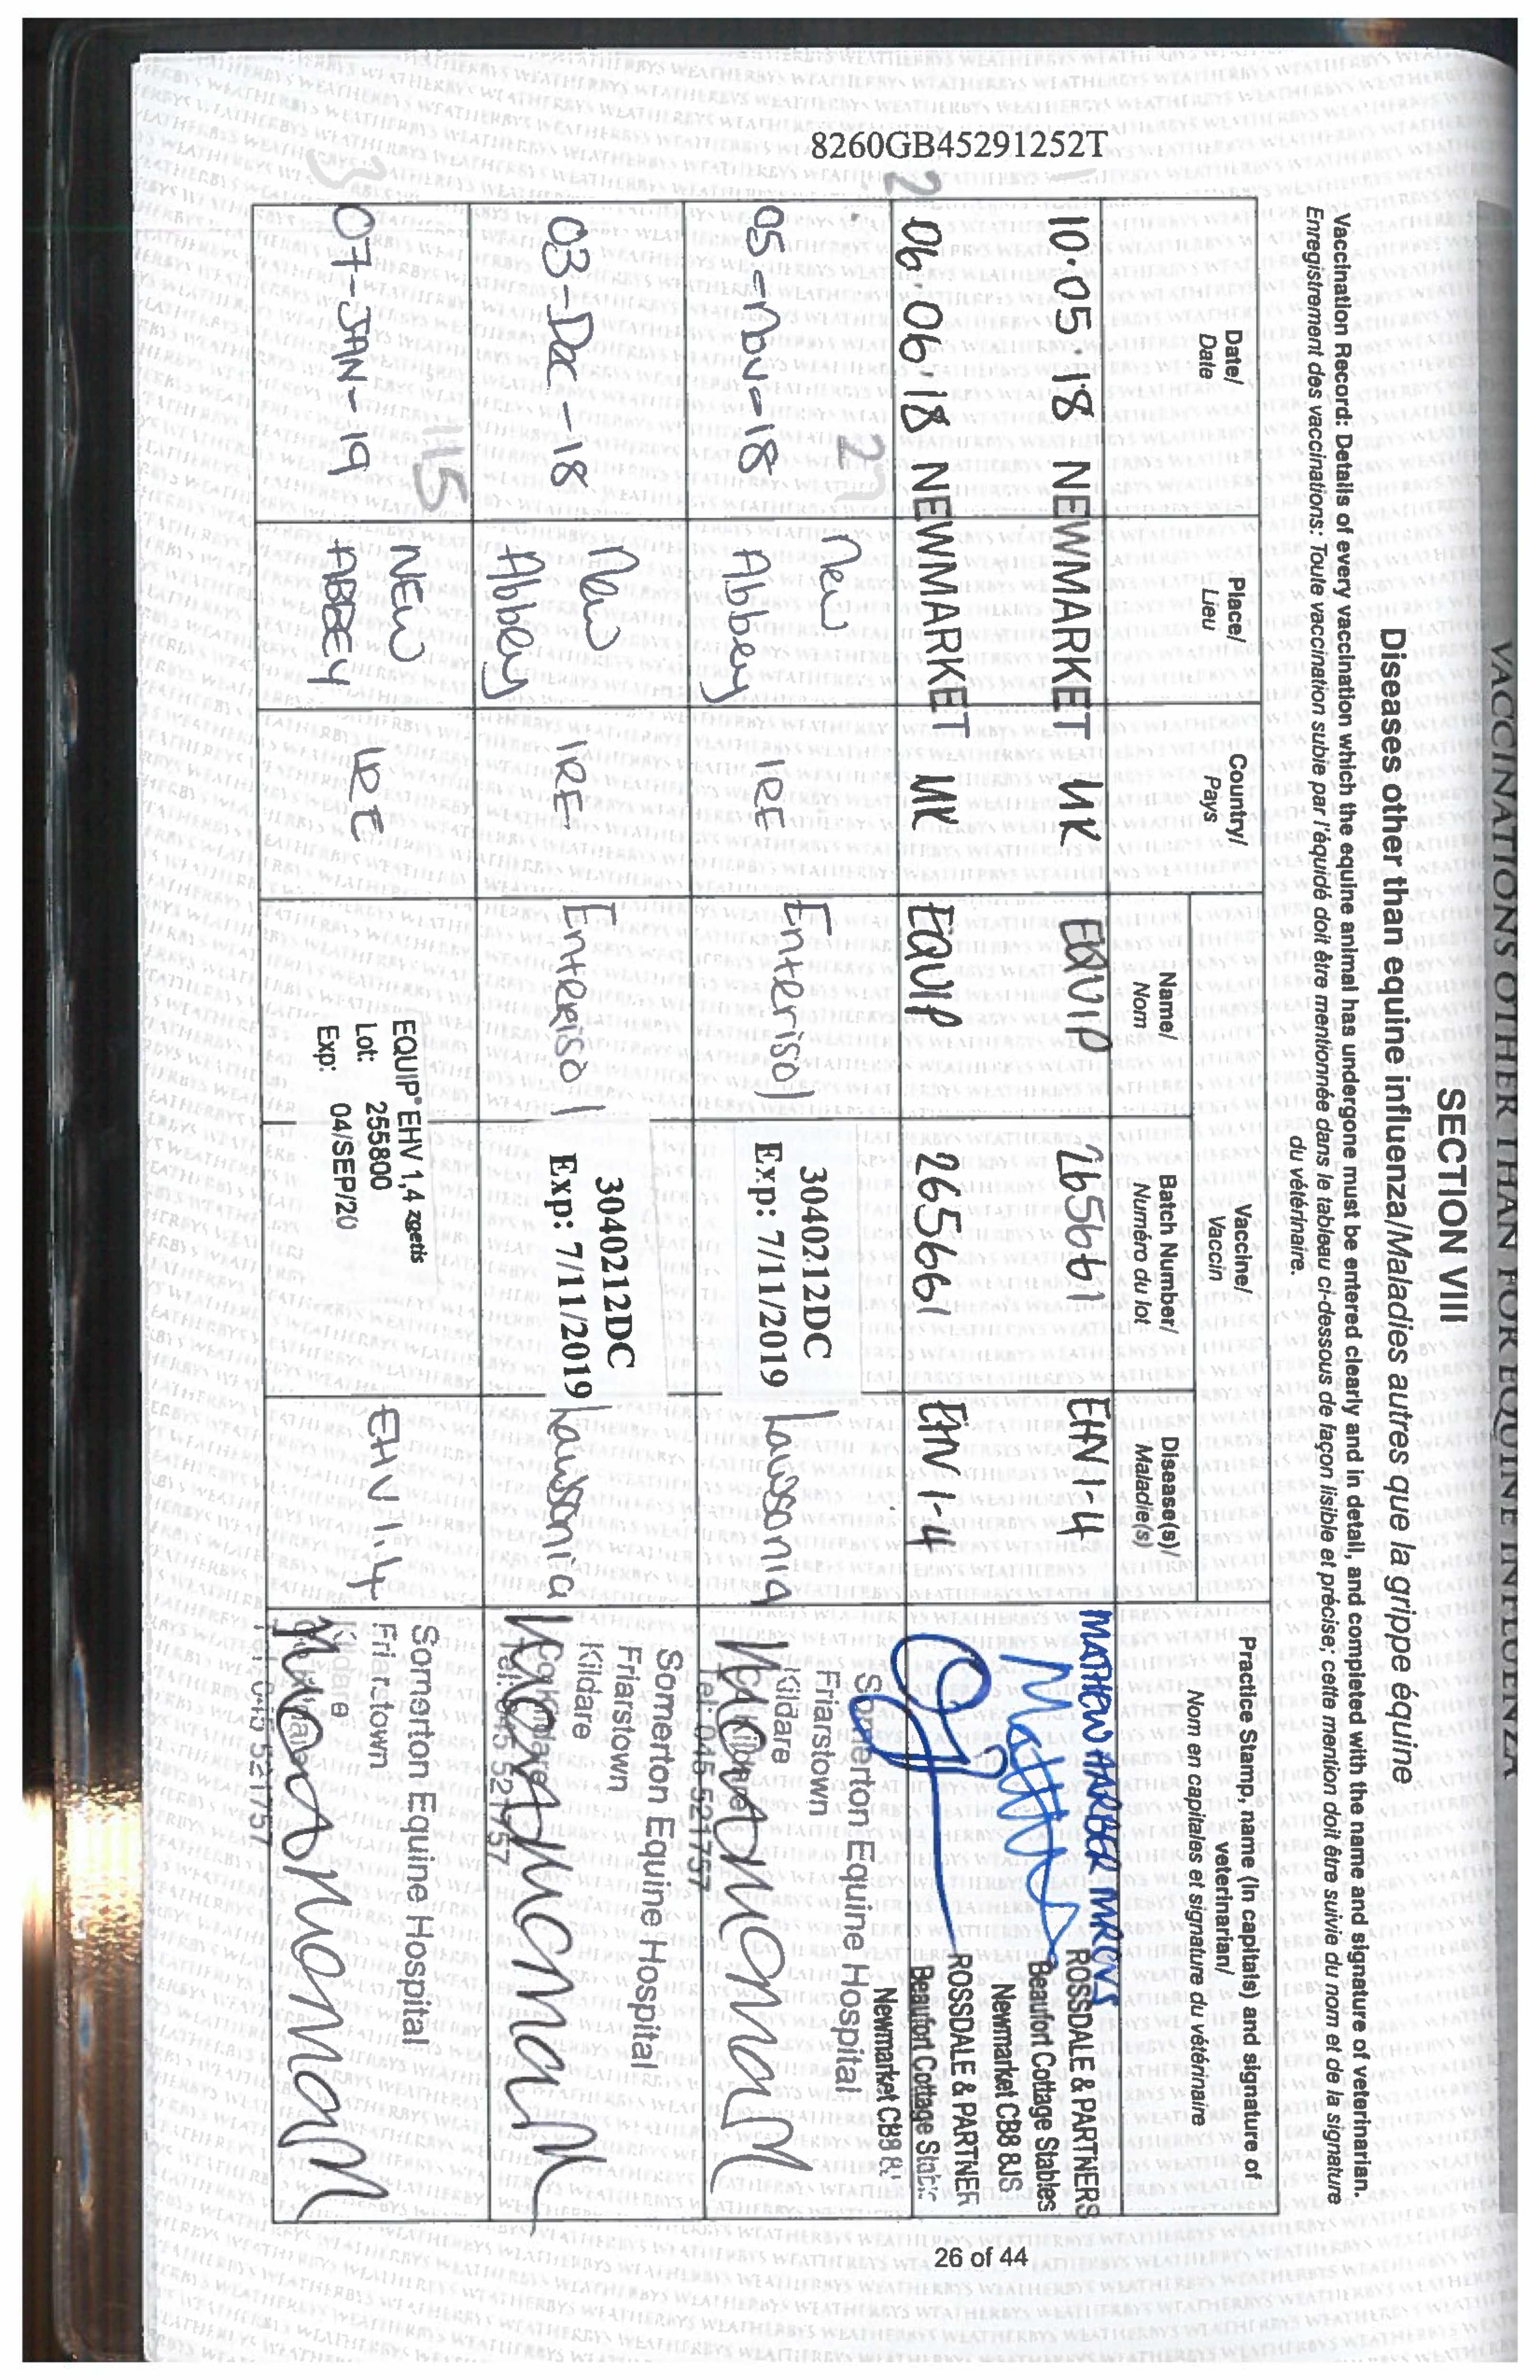 VACCINATIONS OTHER THAN FOR EQUINE INFLUENZA
SECTION VIII
Diseases other than equine influenza/Maladies autres que la grippe équine
Vaccination Record: Details of every vaccination which the equine animal has undergone must be entered clearly and in detail, and completed with the name and signature of veterinarian.
Enregistrement des vaccinations: Toute vaccination subie par l'équidé doit être mentionnée dans le tableau ci-dessous de façon lisible et précise; cette mention doit être suivie du nom et de la signature
du vétérinaire.
Date/
Date
Place/
Lieu
Country/
Pays
Vaccine/
Vaccin
Name/
Nom
Batch Number/
Numéro du lot
Disease(s)/
Maladie(s)
Practice Stamp, name (in capitals) and signature of
veterinarian/
Nom en capitales et signature du vétérinaire
1
10.05.18 NEWMARKET UK EQUIP 265661 EHV 1-4
MATHEW HARBER MRCVS
ROSSDALE & PARTNERS
Beaufort Cottage Stables
Newmarket CB8 8JS
2 27
06.06.18 NEWMARKET UK EQUIP 265661 EHV 1-4
ROSSDALE & PARTNER
Beaufort Cottage
Newmarket CB8
05-Nov-18 New
Abbey
IRE Enterisol
3040212DC
Exp: 7/11/2019
Lawsonia
Somerton Equine Hospital
Friarstown
Kildare
Tel: 045 521757
03-Dec-18 New
Abbey
IRE Enterisol
3040212DC
Exp: 7/11/2019
Lawsonia
Somerton Equine Hospital
Friarstown
Kildare
Tel: 045 521757
3 115
07-JAN-19 NEW
ABBEY
IRE
EQUIP® EHV 1,4 zoetis
Lot: 255800
Exp: 04/SEP/20
EHV 1.4
Somerton Equine Hospital
Friarstown
Kildare
045 521757
8260GB45291252T
26 of 44